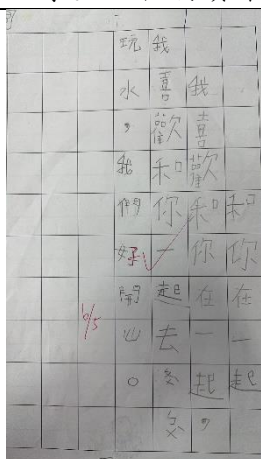 和你在一起
我喜歡和你在一起，
我喜歡和你一起去
玩水，我們好開心。
6/5